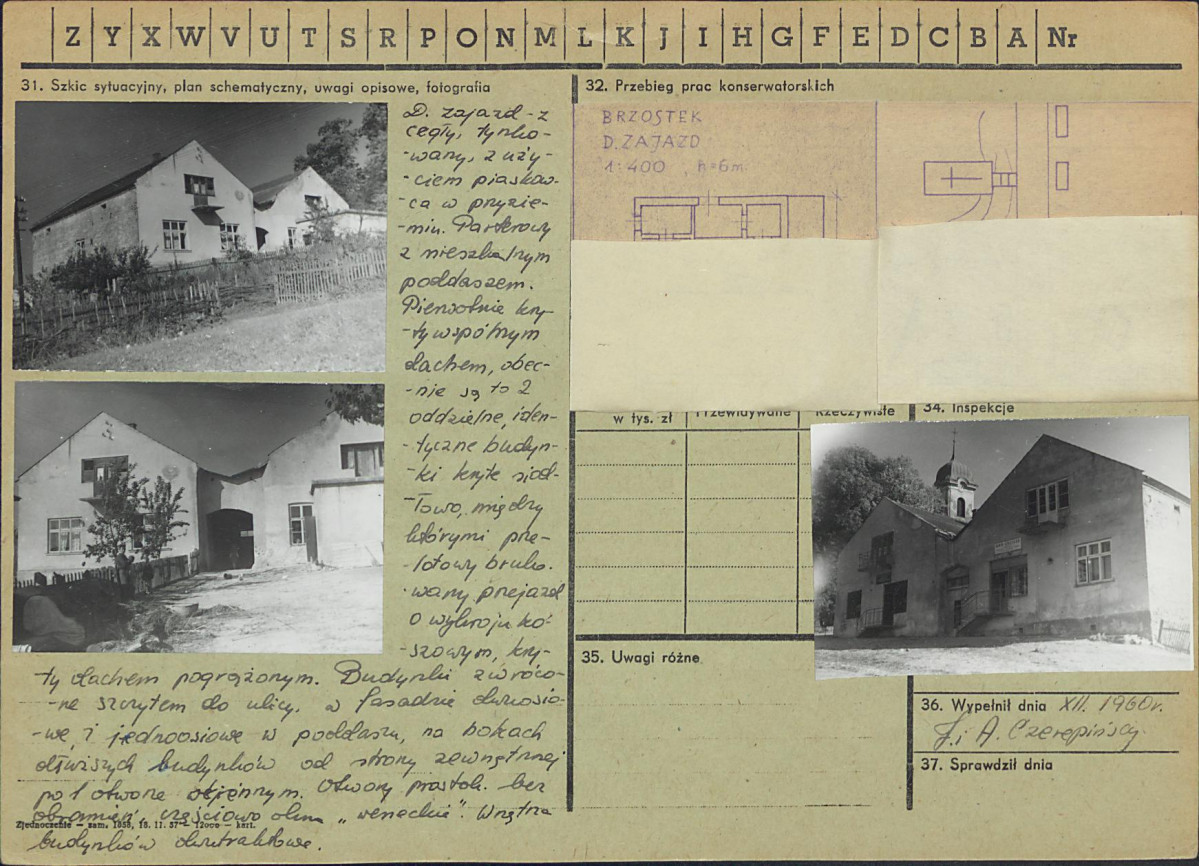 Z Y X W V U T S R P O N M L K J I H G F E D C B A Nr
31. Szkic sytuacyjny, plan schematyczny, uwagi opisowe, fotografia
D. zajazd - z
cegły, tynko-
-wany, z uży-
-ciem piaskow-
-ca w przyzie-
-miu. Parterowy
z mieszkalnym
poddaszem.
Pierwotnie kry-
-ty wspólnym
dachem, obec-
-nie są to 2
oddzielne, iden-
-tyczne budyn-
-ki kryte siod-
-łowo, między
którymi prze-
-lotowy bruko-
-wany przejazd
o wykroju ko-
-szowym, kry-
ty dachem pogrążonym. Budynki zwróco-
-ne szczytem do ulicy, w fasadzie dwuosio-
-we, i jednoosiowe w poddaszu, na bokach
dłuższych budynków od strony zewnętrznej
po 1 otworze okiennym. Otwory prostok. bez
obramień, częściowo okna "weneckie". Wnętrza
budynków dwutraktowe.
Zjednoczenie — zam. 1858, 18. 11. 57 — 12000 — kart.
32. Przebieg prac konserwatorskich
BRZOSTEK
D. ZAJAZD
1:400 h=6m
w tys. zł Przewidywane Rzeczywiste
34. Inspekcje
35. Uwagi różne
36. Wypełnił dnia XII. 1960r.
J. i A. Czerepińscy
37. Sprawdził dnia